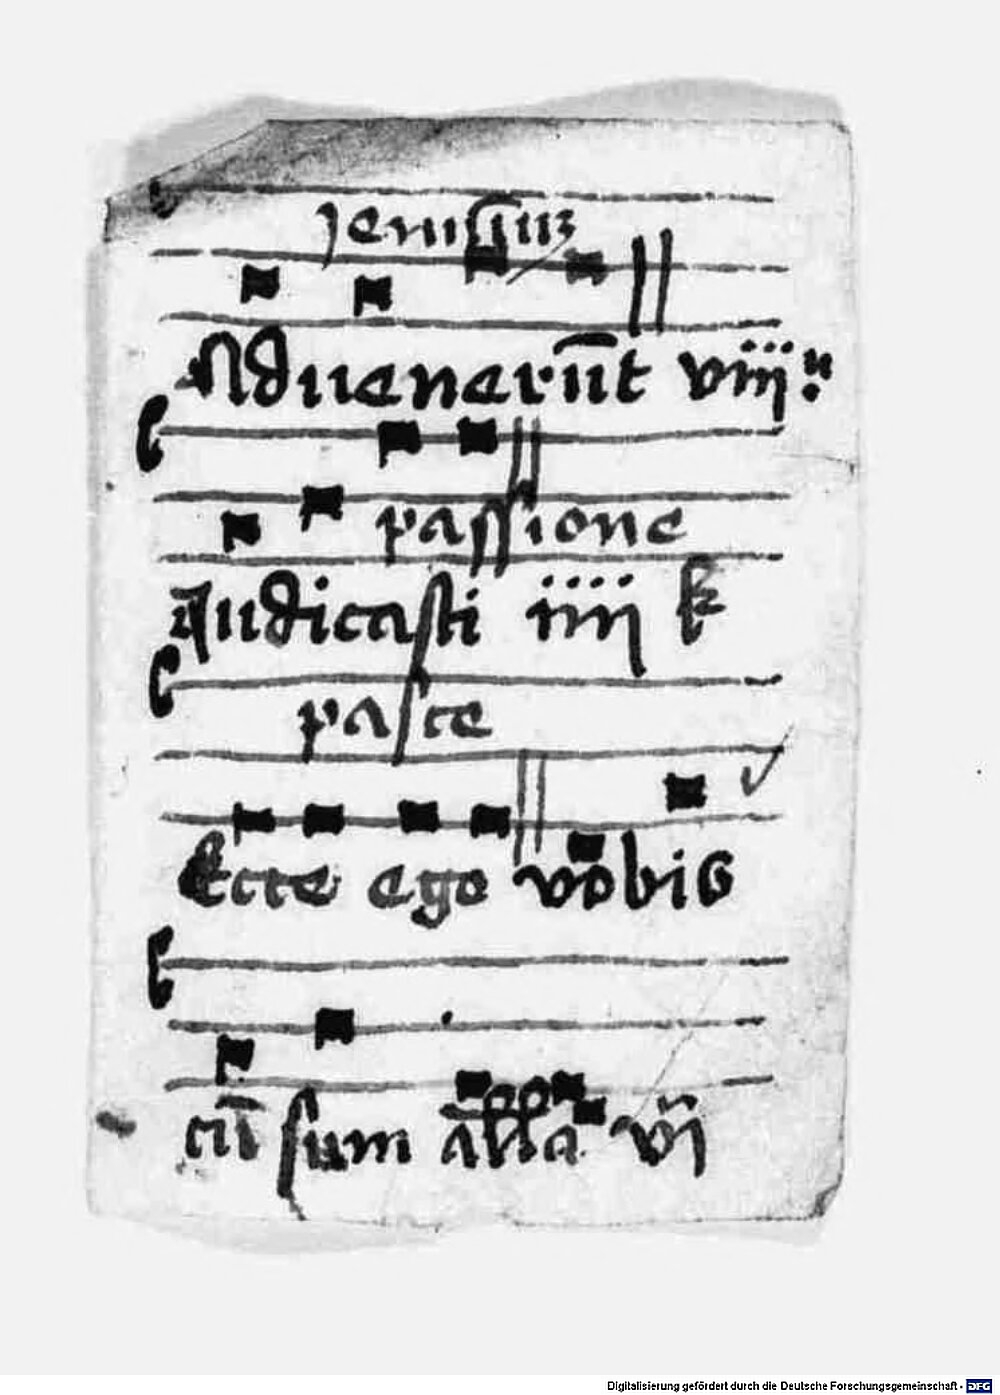 Ieiuniuꝫ
Aduenerūt viij
passione
Iudicasti iiij
pasce
Ecce ego vobis
cū sum alla vj
Digitalisierung gefördert durch die Deutsche Forschungsgemeinschaft - DFG